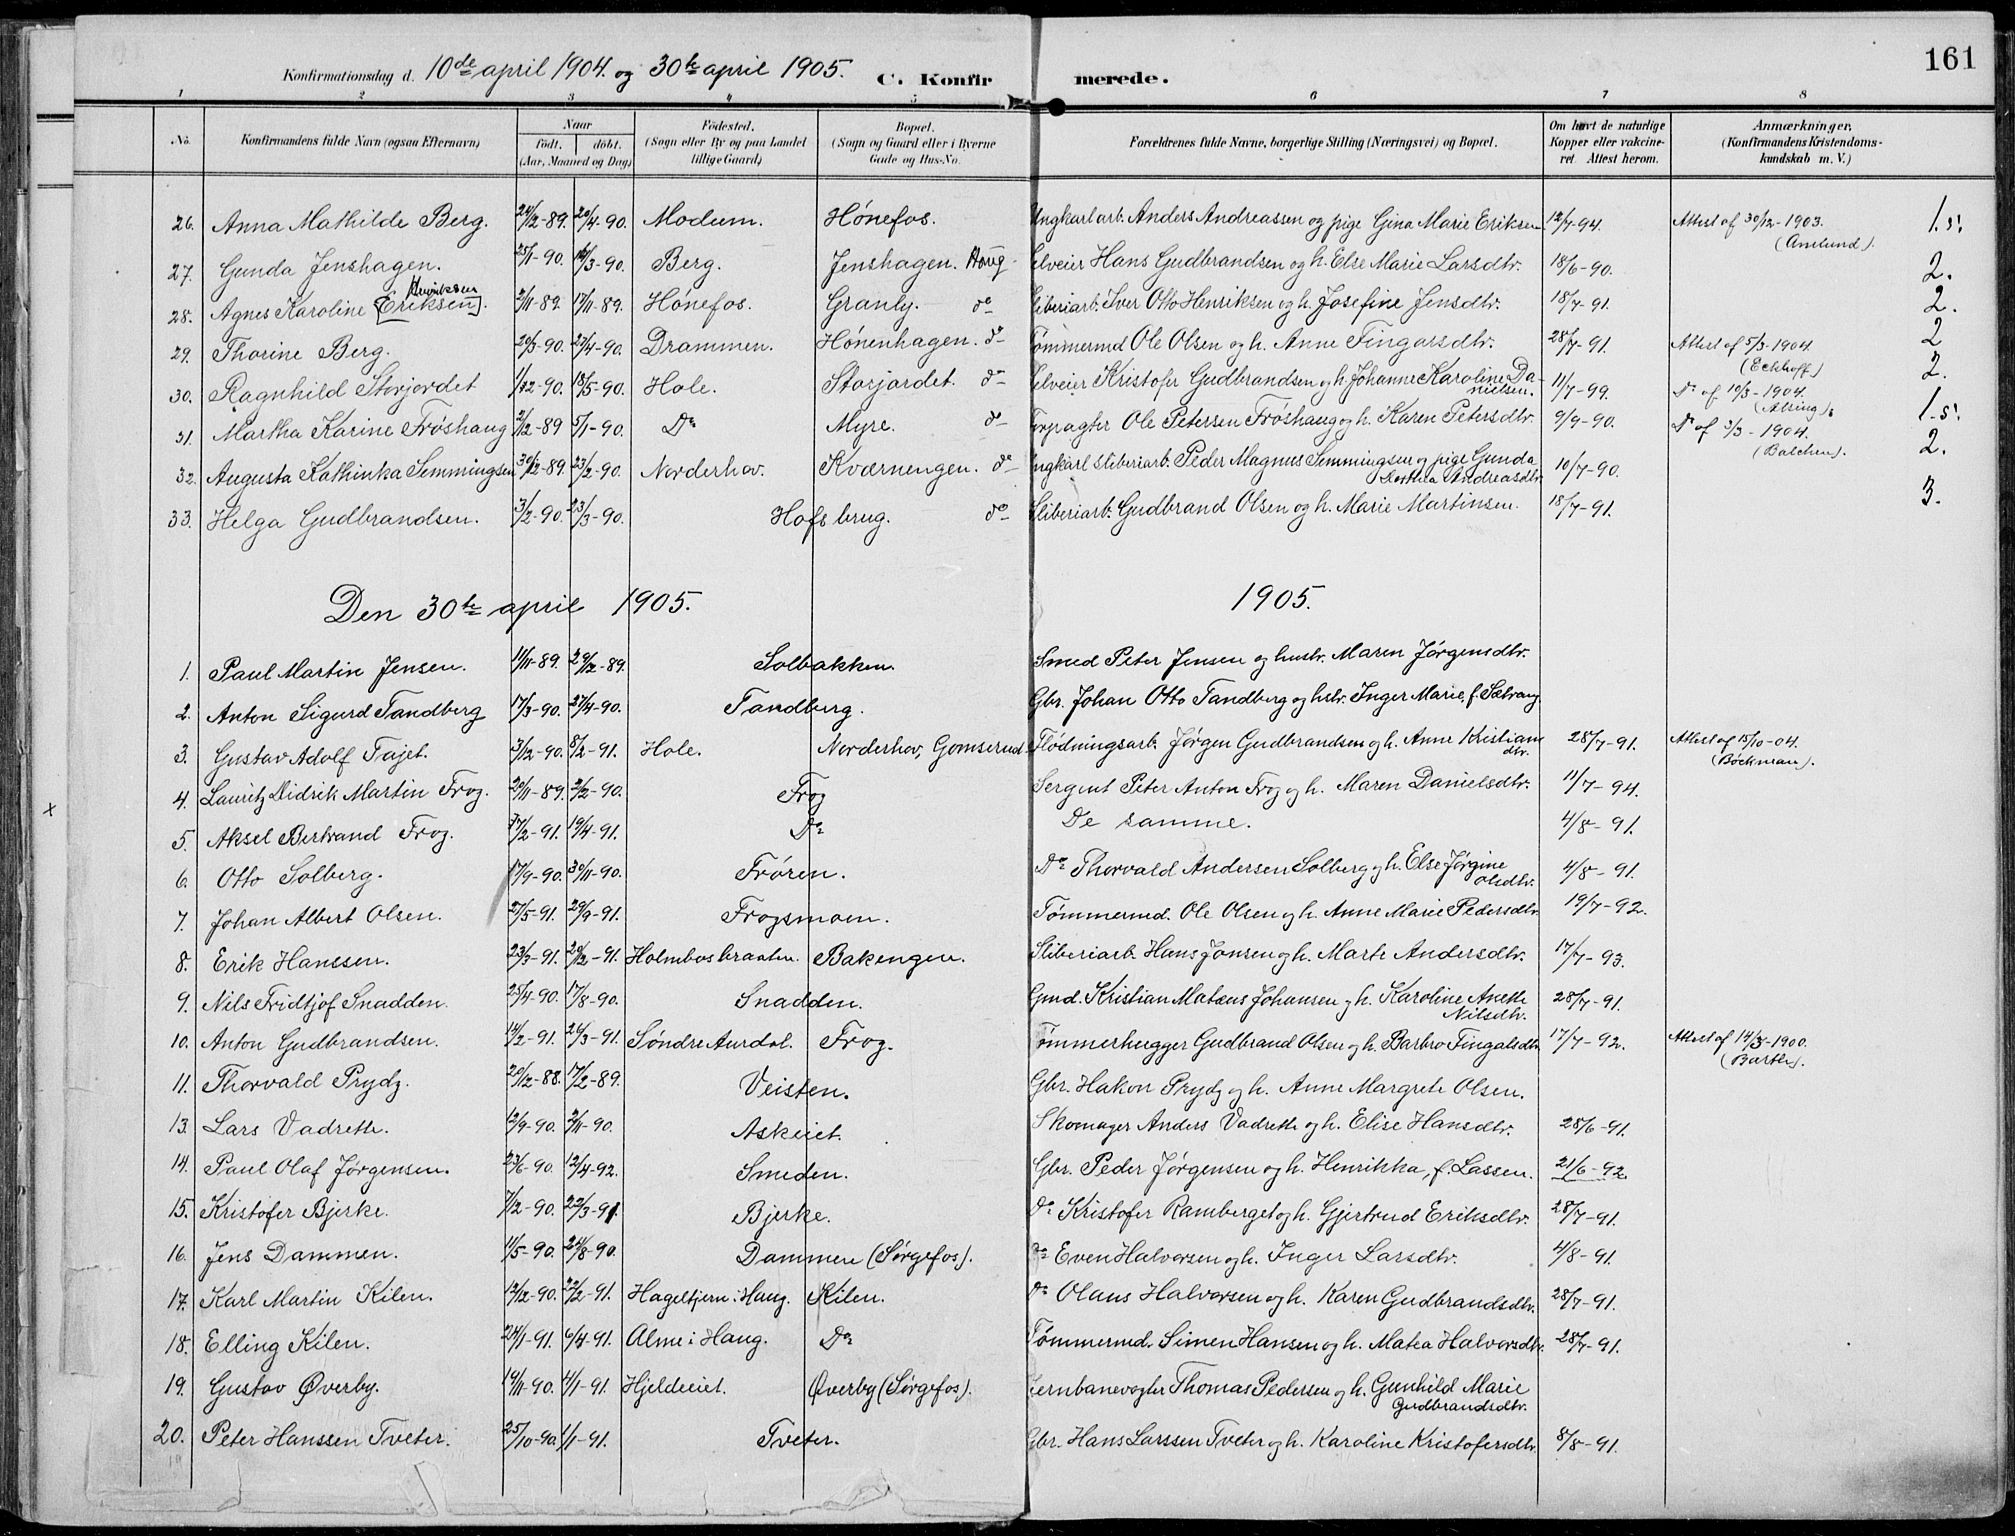 161
Konfirmationsdag d. 10de april 1904. og 30te april 1905. C. Konfirmerede.
1 2 3 4 5 6 7 8
No. Konfirmandens fulde Navn (ogsaa Efternavn) Naar født. døbt. (Aar, Maaned og Dag) Fødested. (Sogn eller By og paa Landet tillige Gaard) Bopæl. (Sogn og Gaard eller i Byerne Gade og Hus-No. Forældrenes fulde Navne, borgerlige Stilling (Næringsvei) og Bopæl. Om havt de naturlige Kopper eller vakcineret. Attest herom. Anmærkninger. (Konfirmandens Kristendomskundskab m. V.)
26. Anna Mathilde Berg. 24/12-89. 20/4-90. Modum. Hønefos. Ungkarl arb. Anders Andreassen og pige Gina Marie Eriksen 12/7-94. Attest af 30/12-1903. (Amlund). 1.5.
27. Gunda Jenshagen. 25/1-90. 16/3-90. Berg. Jenshagen. Houg Selveier Hans Gudbrandsen og h. Else Marie Larsdtr. 18/6-90. 2.
28. Agnes Karoline [Eriksen]. Henriksen 2/11-89. 17/11-89. Hønefos. Granly. do Sliberiarb. Iver Otto Henriksen og h. Josefine Jensdtr. 18/7-91. 2.
29. Thorine Berg. 20/3-90. 27/4-90. Drammen. Hønenhagen. do Tømmermd Ole Olsen og h. Anne Fingarsdtr. 28/7-91. Attest af 5/3-1904. (Eckhoff) 2
30. Ragnhild Storjordet 1/12-90. 18/5-90. Hole. Storjordet. do Selveier Kristofer Gudbrandsen og h. Johanne Karoline Danielsen. 11/7-99. Do af 10/3-1904. (Alsing). 2.
31. Martha Karine Frøshaug 2/12-89 5/1-90. Do Myre. do Forpagter Ole Petersen Frøshaug og h. Karen Petersdtr. 9/9-90. Do af 3/3-1904. (Balchen). 1.5.
32. Augusta Kathinka Semmingsen 30/12-89. 23/2-90. Norderhov. Kværnengen. do Ungkarl sliberiarb. Peder Magnus Semmingsen og pige Gunda Dorthea Andreasdtr. 10/7-90. 2.
33. Helga Gudbrandsen. 3/2-90. 23/3-90. Hofsbrug. do Sliberiarb. Gudbrand Olsen og h. Marie Martinsen. 18/7-91. 3.
Den 30te april 1905. 1905.
1. Paul Martin Jensen. 11/11-89. 29/12-89. Solbakken. Smed Peter Jensen og hustr. Maren Jørgensdtr.
2. Anton Sigurd Tandberg 17/3-90. 27/4-90. Tandberg. Gbr. Johan Otto Tandberg og hstr. Inger Marie, f. Sætrang.
3. Gustav Adolf Fajet. 3/12-90. 8/2-91. Hole. Norderhov, Gomserud. Flødningsarb. Jørgen Gudbrandsen og h. Anne Kristiansdtr. 28/7-91. Attest af 15/10-04. (Bøckman).
4. Lauritz Didrik Martin Frog. 20/11-89. 2/2-90. Frog Sergent Peter Anton Frog og h. Maren Danielsdtr. 11/7-94.
x
5. Aksel Bertrand Frog. 27/2-91. 19/4-91. Do De samme. 4/8-91.
6. Otto Solberg. 17/9-90. 30/11-90. Frøren. Do Thorvald Andersen Solberg og h. Else Jørgine Olsdtr. 4/8-91.
7. Johan Albert Olsen. 27/5-91. 29/9-91. Frogsmoen. Tømmermd. Ole Olsen og h. Anne Marie Pedersdtr. 19/7-92.
8. Erik Hanssen. 23/9-91. 20/12-91. Holmbosbraaten Bakengen. Sliberiarb. Hans Jonsen og h. Marte Andersdtr. 17/7-93.
9. Nils Fridtjof Snadden. 25/4-90. 17/8-90. Snadden. Gmd. Kristian Matæus Johansen og h. Karoline Anette Nilsdtr. 28/7-91.
10. Anton Gudbrandsen. 14/2-91. 26/3-91. Søndre Aurdal. Frog. Tømmerhugger Gudbrand Olsen og h. Barbro Fingalsdtr. 17/7-92. Attest af 14/3-1900. (Barth).
11. Thorvald Prydz. 20/12-88. 17/2-89. Veisten. Gbr. Hakon Prydz og h. Anne Margrete Olsen.
13. Lars Vadrette. 12/9-90. 2/11-90. Askeiet. Skomager Anders Vadrette og h. Elise Hansdtr. 28/6-91.
14. Paul Olaf Jørgensen. 23/6-90. 12/4-92. Smeden. Gbr. Peder Jørgensen og h. Henrikka, f. Lassen. 21/6-92.
15. Kristofer Bjerke. 7/12-90. 22/3-91. Bjerke. Do Kristofer Ramberget og h. Gjertrud Eriksdtr. 28/7-91.
16. Jens Dammen. 11/5-90. 24/8-90. Dammen (Sørgefos). Do Even Halvorsen og h. Inger Larsdtr. 4/8-91.
17. Karl Martin Kilen. 12/12-90. 22/2-91. Hageltjern i Haug. Kilen. Do Olaus Halvorsen og h. Karen Gudbrandsdtr. 28/7-91.
18. Elling Kilen. 24/1-91. 6/4-91. Alme i Haug. Do Tømmermd. Simen Hansen og h. Matea Halvorsdtr. 28/7-91.
19. Gustav Øverby. 14/11-90. 4/1-91. Hjeldeeiet. Øverby (Sørgefos). Jernbanevogter Thomas Pedersen og h. Gunhild Marie Gudbrandsdtr.
20. Peter Hanssen Tveter. 25/10-90. 1/1-91. Tveter. Gbr. Hans Larssen Tveter og h. Karoline Kristofersdtr. 8/8-91.